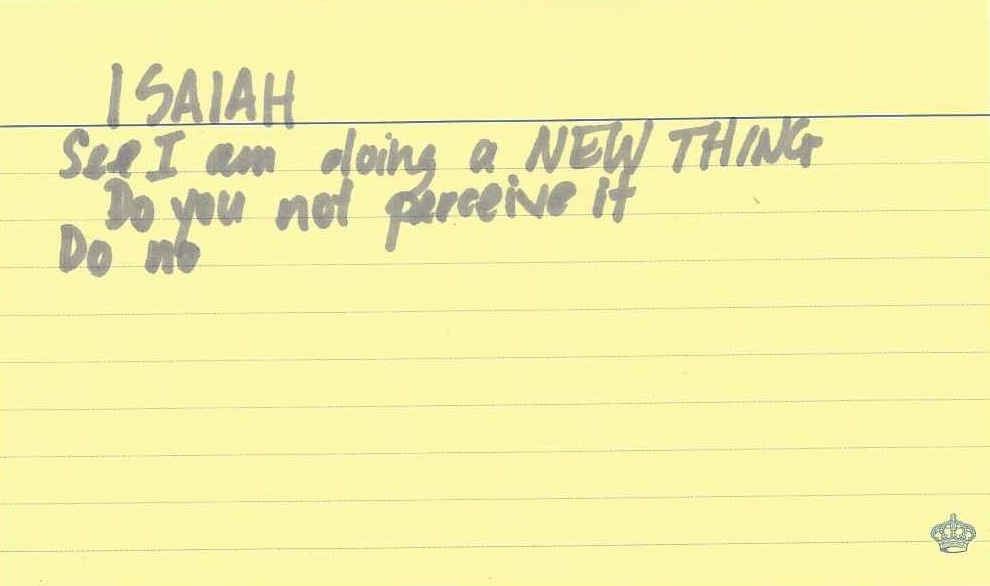 ISAIAH
See I am doing a NEW THING
Do you not perceive it
Do no